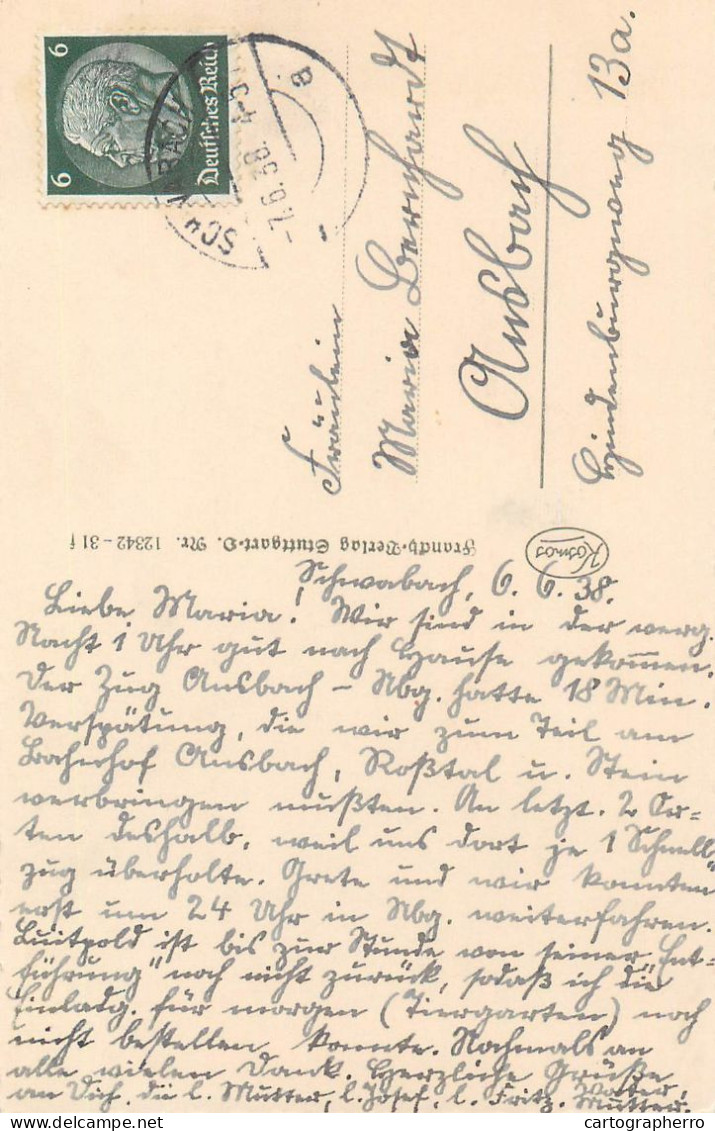 6 6
Deutsches Reich
SCHWABACH
-7.6.38. 4-5
a
Fräulein
Maria Bernhardt
Ansbach
Hindenburgweg 13a.
Kosmos
Franckh-Verlag Stuttgart-O. Nr. 12342-31 f
Schwabach, 6. 6. 38.
Liebe Maria! Wir sind in der verg.
Nacht 1 Uhr gut nach Hause gekommen.
Der Zug Ansbach – Nbg. hatte 18 Min.
Verspätung, die wir zum Teil am
Bahnhof Ansbach, Roßtal u. Stein
verbringen mußten. An letzt. 2 Or=
ten deshalb, weil uns dort je 1 Schnell"
zug überholte. Grete und wir konnten
erst um 24 Uhr in Nbg. weiterfahren.
Luitpold ist bis zur Stunde von seiner "Ent=
führung" noch nicht zurück, sodaß ich die
Einladg. für morgen (Tiergarten) noch
nicht bestellen konnte. Nochmals an
alle vielen Dank. Herzliche Grüße
an Dich, die l. Mutter, l. Josef, l. Fritz. Vater,
Mutter.
cartographerro